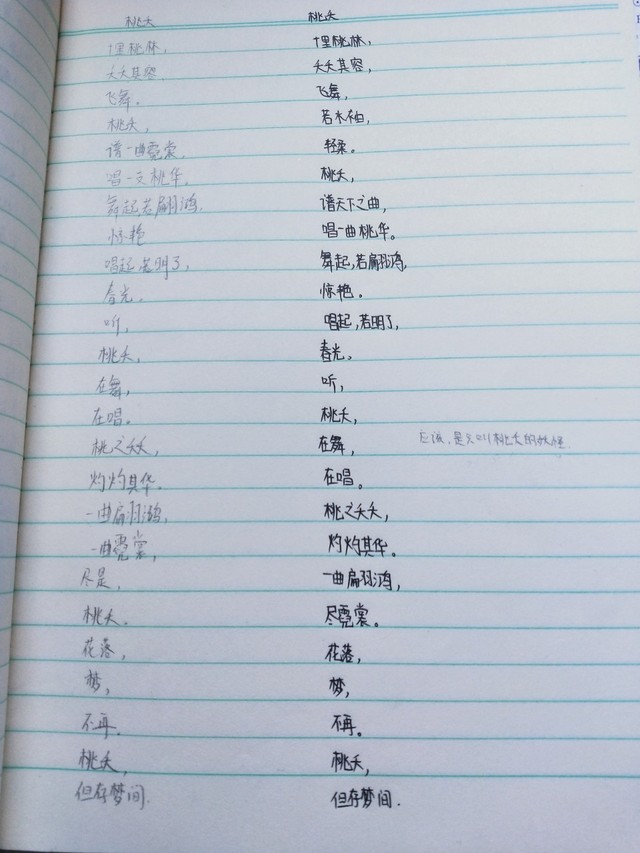 桃夭
桃林，
夭夭其容
飞舞，
桃夭，
谱一曲霓裳，
唱一支桃华，
舞起若翩鸿，
惊艳
唱起若明了，
春光，
听，
桃夭，
在舞，
在唱。
桃之夭夭，
灼灼其华。
一曲翩鸿，
一曲霓裳，
尽是，
桃夭.
花落，
梦，
不再.
桃夭，
但存梦间.
桃夭
桃林，
夭夭其容，
飞舞，
若木袖，
轻柔。
桃夭，
谱天下之曲，
唱一曲桃华。
舞起，若翩鸿，
惊艳。
唱起，若明了，
春光。
听，
桃夭，
在舞，
在唱。
桃之夭夭，
灼灼其华。
一曲翩鸿，
尽霓裳。
花落，
梦，
不再。
桃夭，
但存梦间.
应该，是只叫桃夭的妖怪